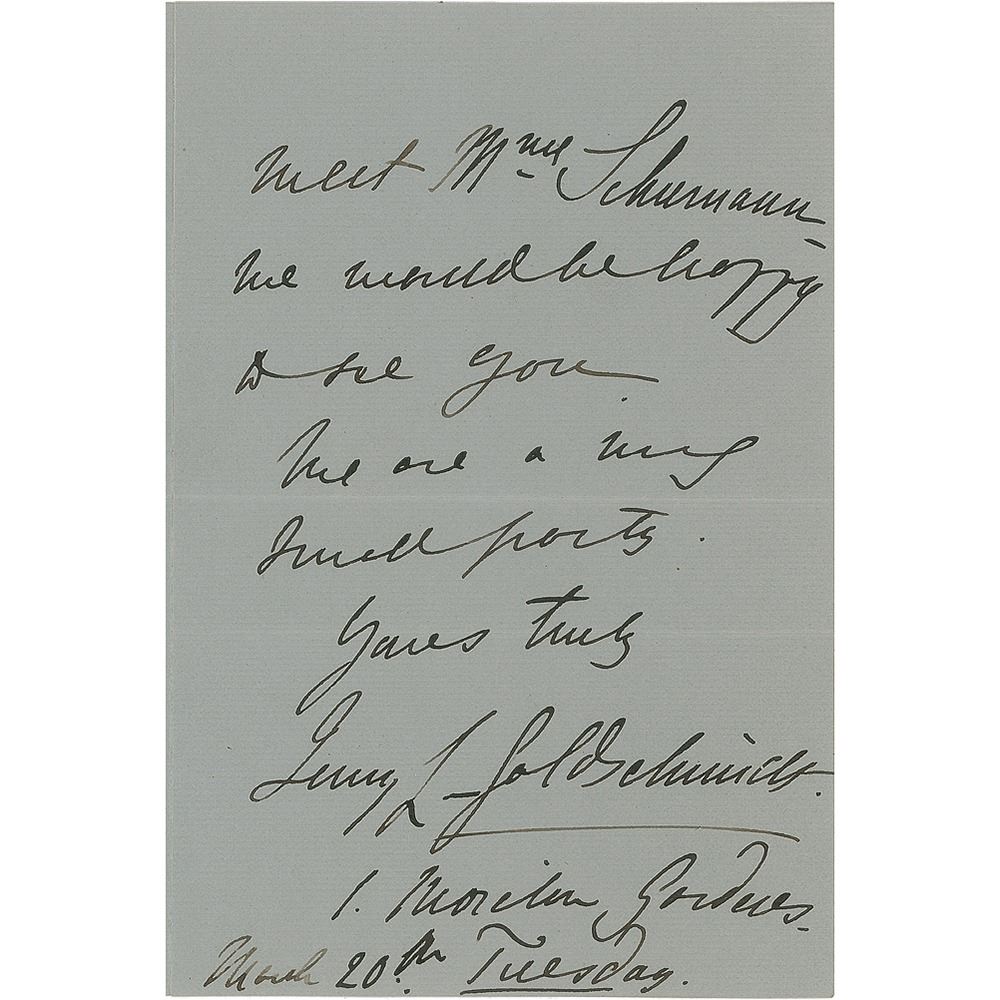 meet Mme Schumann -
we would be happy
to see you.
We are a very
small party.
Yours truly
Jenny L-Goldschmidt.
1. Moreton Gardens.
March 20.th Tuesday.